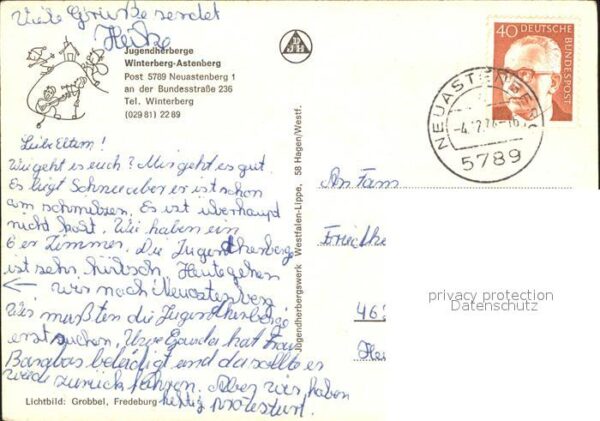 Viele Grüße sendet
Heike
Jugendherberge
Winterberg-Astenberg
Post 5789 Neuastenberg 1
an der Bundesstraße 236
Tel. Winterberg
(029 81) 22 89
DJH
40 DEUTSCHE BUNDESPOST
NEUASTENBERG
5789
Liebe Eltern!
Wie geht es euch? Mir geht es gut.
Es liegt Schnee aber er ist schon
am schmilzen. Es ist überhaupt
nicht kalt. Wir haben ein
6er Zimmer. Die Jugendherberge
ist sehr hübsch. Heute gehen
← wir nach Neuastenberg
Wir mußten die Jugendherberge
erst suchen. Uwe hat Frau
beleidigt und da sollte er
wieder zurück fahren. Aber wir haben
heftig protestiert.
Lichtbild: Grobbel, Fredeburg
Jugendherbergswerk Westfalen-Lippe, 58 Hagen/Westf.
An Fam
Friedhe
462
He
privacy protection
Datenschutz